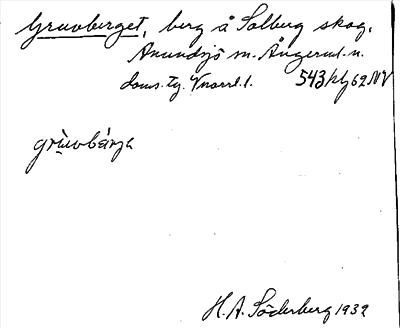 Gruvberget, berg å Solberg skog,
Anundsjö sn. Ångerml. n.
doms. tg. Vnorrl. l. 543/klj 62 NV
grùvbárja
H. A. Söderberg 1932